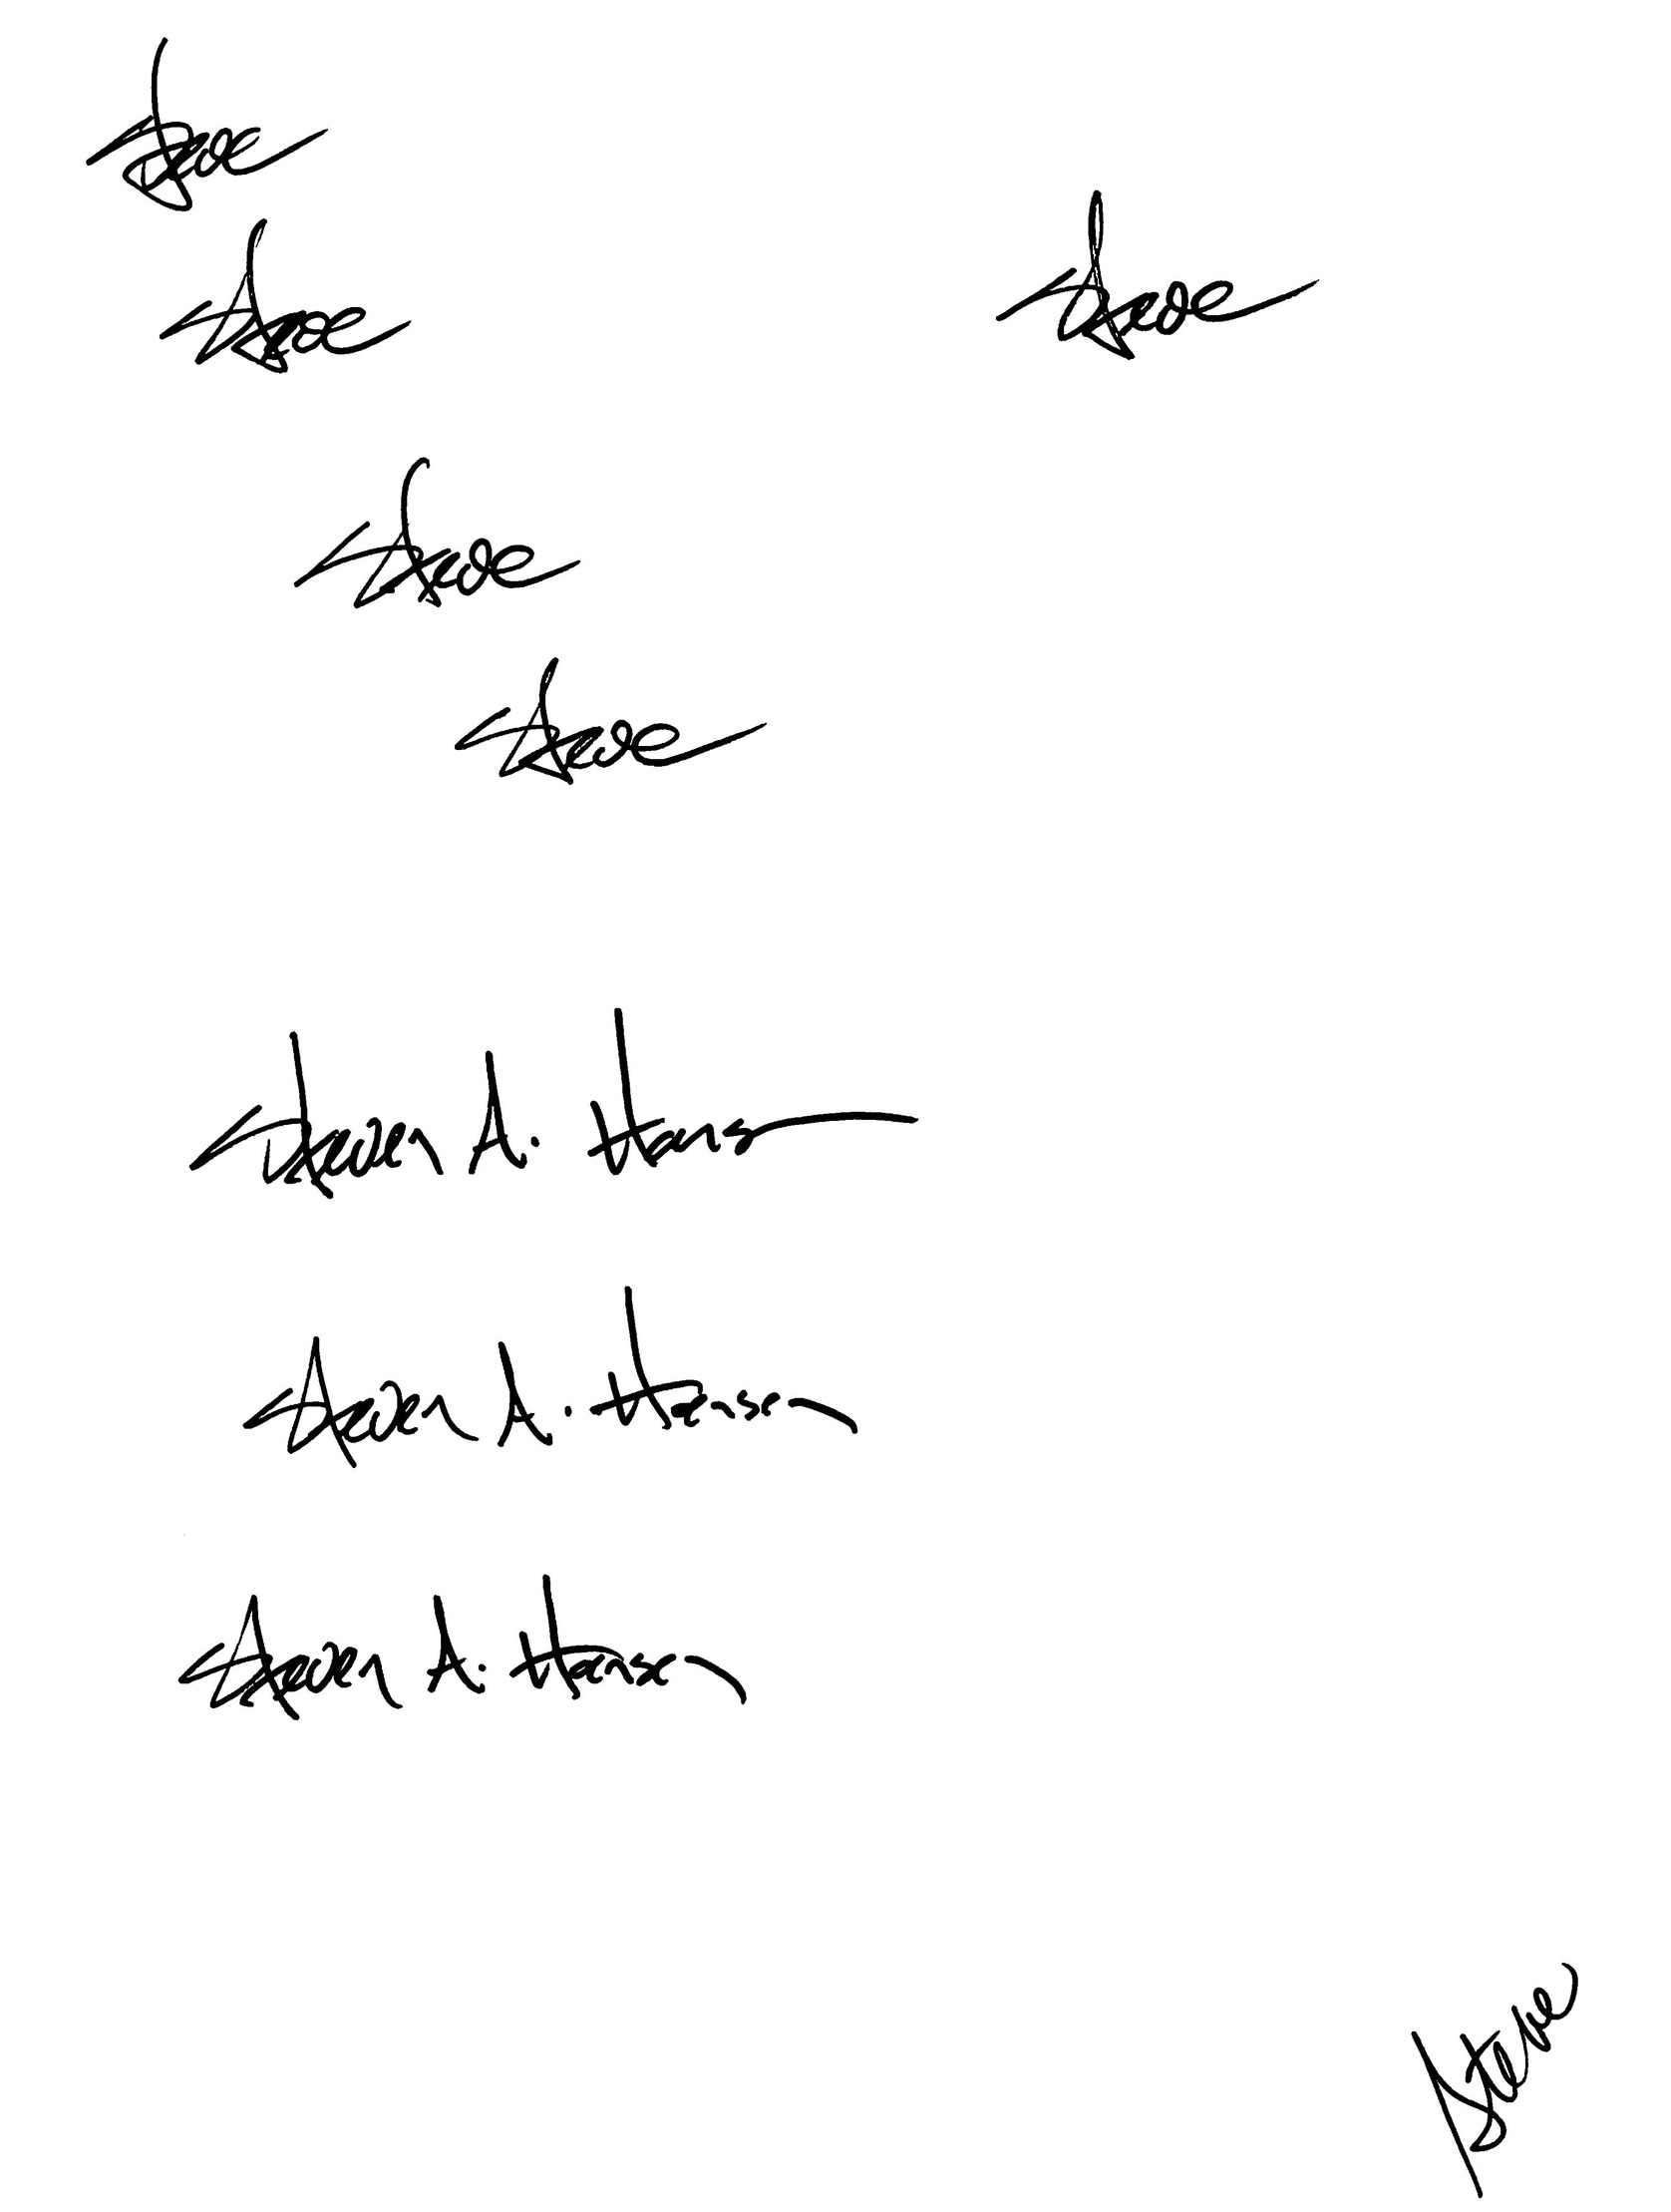 Steve
Steve
Steve
Steve
Steve
Steven A. Hans
Steven A. Hanson
Steven A. Hanson
Steve